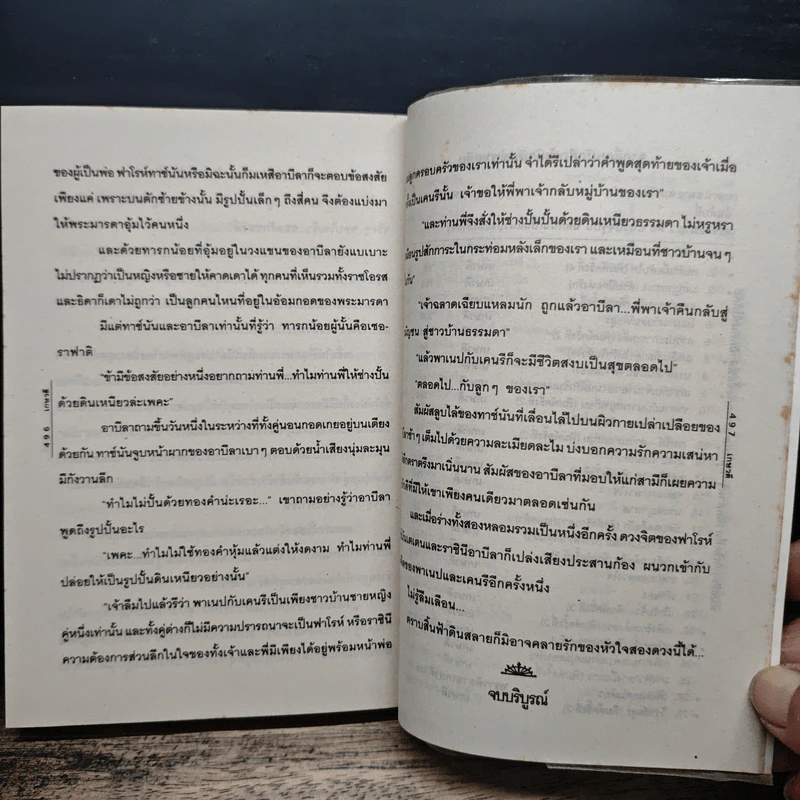 ของผู้เป็นพ่อ ฟาโรห์ทาช์นันหรือมิฉะนั้นก็มเหสีอาบีลาก็จะตอบข้อสงสัย
เพียงแค่ เพราะบนตักซ้ายข้างนั้น มีรูปปั้นเล็กๆ ถึงสี่คน จึงต้องแบ่งมา
ให้พระมารดาอุ้มไว้คนหนึ่ง
และด้วยทารกน้อยที่อุ้มอยู่ในวงแขนของอาบีลายังแบเบาะ
ไม่ปรากฏว่าเป็นหญิงหรือชายให้คาดเดาได้ ทุกคนที่เห็นรวมทั้งราชโอรส
และธิดาก็เดาไม่ถูกว่า เป็นลูกคนไหนที่อยู่ในอ้อมกอดของพระมารดา
มีแต่ทาช์นันและอาบีลาเท่านั้นที่รู้ว่า ทารกน้อยผู้นั้นคือเซอ-
ราฟาติ
"ข้ามีข้อสงสัยอย่างหนึ่งอยากถามท่านพี่...ทำไมท่านพี่ให้ช่างปั้น
ด้วยดินเหนียวล่ะเพคะ"
อาบีลาถามขึ้นวันหนึ่งในระหว่างที่ทั้งคู่นอนกอดเกยอยู่บนเตียง
ด้วยกัน ทาช์นันจูบหน้าผากของอาบีลาเบาๆ ตอบด้วยน้ำเสียงนุ่มละมุน
มีกังวานลึก
"ทำไมไม่ปั้นด้วยทองคำน่ะเรอะ..." เขาถามอย่างรู้ว่าอาบีลา
พูดถึงรูปปั้นอะไร
"เพคะ...ทำไมไม่ใช้ทองคำหุ้มแล้วแต่งให้งดงาม ทำไมท่านพี่
ปล่อยให้เป็นรูปปั้นดินเหนียวอย่างนั้น"
"เจ้าลืมไปแล้วรึว่า พาเนปกับเคนรีเป็นเพียงชาวบ้านชายหญิง
คู่หนึ่งเท่านั้น และทั้งคู่ต่างก็ไม่มีความปรารถนาจะเป็นฟาโรห์ หรือราชินี
ความต้องการส่วนลึกในใจของทั้งเจ้าและพี่มีเพียงได้อยู่พร้อมหน้าพ่อ
496 เกษวดี
ลูกครอบครัวของเราเท่านั้น จำได้รึเปล่าว่าคำพูดสุดท้ายของเจ้าเมื่อ
เป็นเคนรีนั้น เจ้าขอให้พี่พาเจ้ากลับหมู่บ้านของเรา"
"และท่านพี่จึงสั่งให้ช่างปั้นปั้นด้วยดินเหนียวธรรมดา ไม่หรูหรา
รูปสักการะในกระท่อมหลังเล็กของเรา และเหมือนที่ชาวบ้านจนๆ
"เจ้าฉลาดเฉียบแหลมนัก ถูกแล้วอาบีลา...พี่พาเจ้าคืนกลับสู่
สู่ชาวบ้านธรรมดา"
"แล้วพาเนปกับเคนรีก็จะมีชีวิตสงบเป็นสุขตลอดไป"
"ตลอดไป...กับลูกๆ ของเรา"
สัมผัสลูบไล้ของทาช์นันที่เลื่อนไล้ไปบนผิวกายเปล่าเปลือยของ
ช้าๆ เต็มไปด้วยความละเมียดละไม บ่งบอกความรักความเสน่หา
ตราตรึงมาเนิ่นนาน สัมผัสของอาบีลาที่มอบให้แก่สามีก็เผยความ
ที่มีให้เขาเพียงคนเดียวมาตลอดเช่นกัน
และเมื่อร่างทั้งสองหลอมรวมเป็นหนึ่งอีกครั้ง ดวงจิตของฟาโรห์
และราชินีอาบีลาก็เปล่งเสียงประสานก้อง ผนวกเข้ากับ
ของพาเนปและเคนรีอีกครั้งหนึ่ง
ไม่รู้ลืมเลือน...
ตราบสิ้นฟ้าดินสลายก็มิอาจคลายรักของหัวใจสองดวงนี้ได้...
จบบริบูรณ์
497 เกษวดี